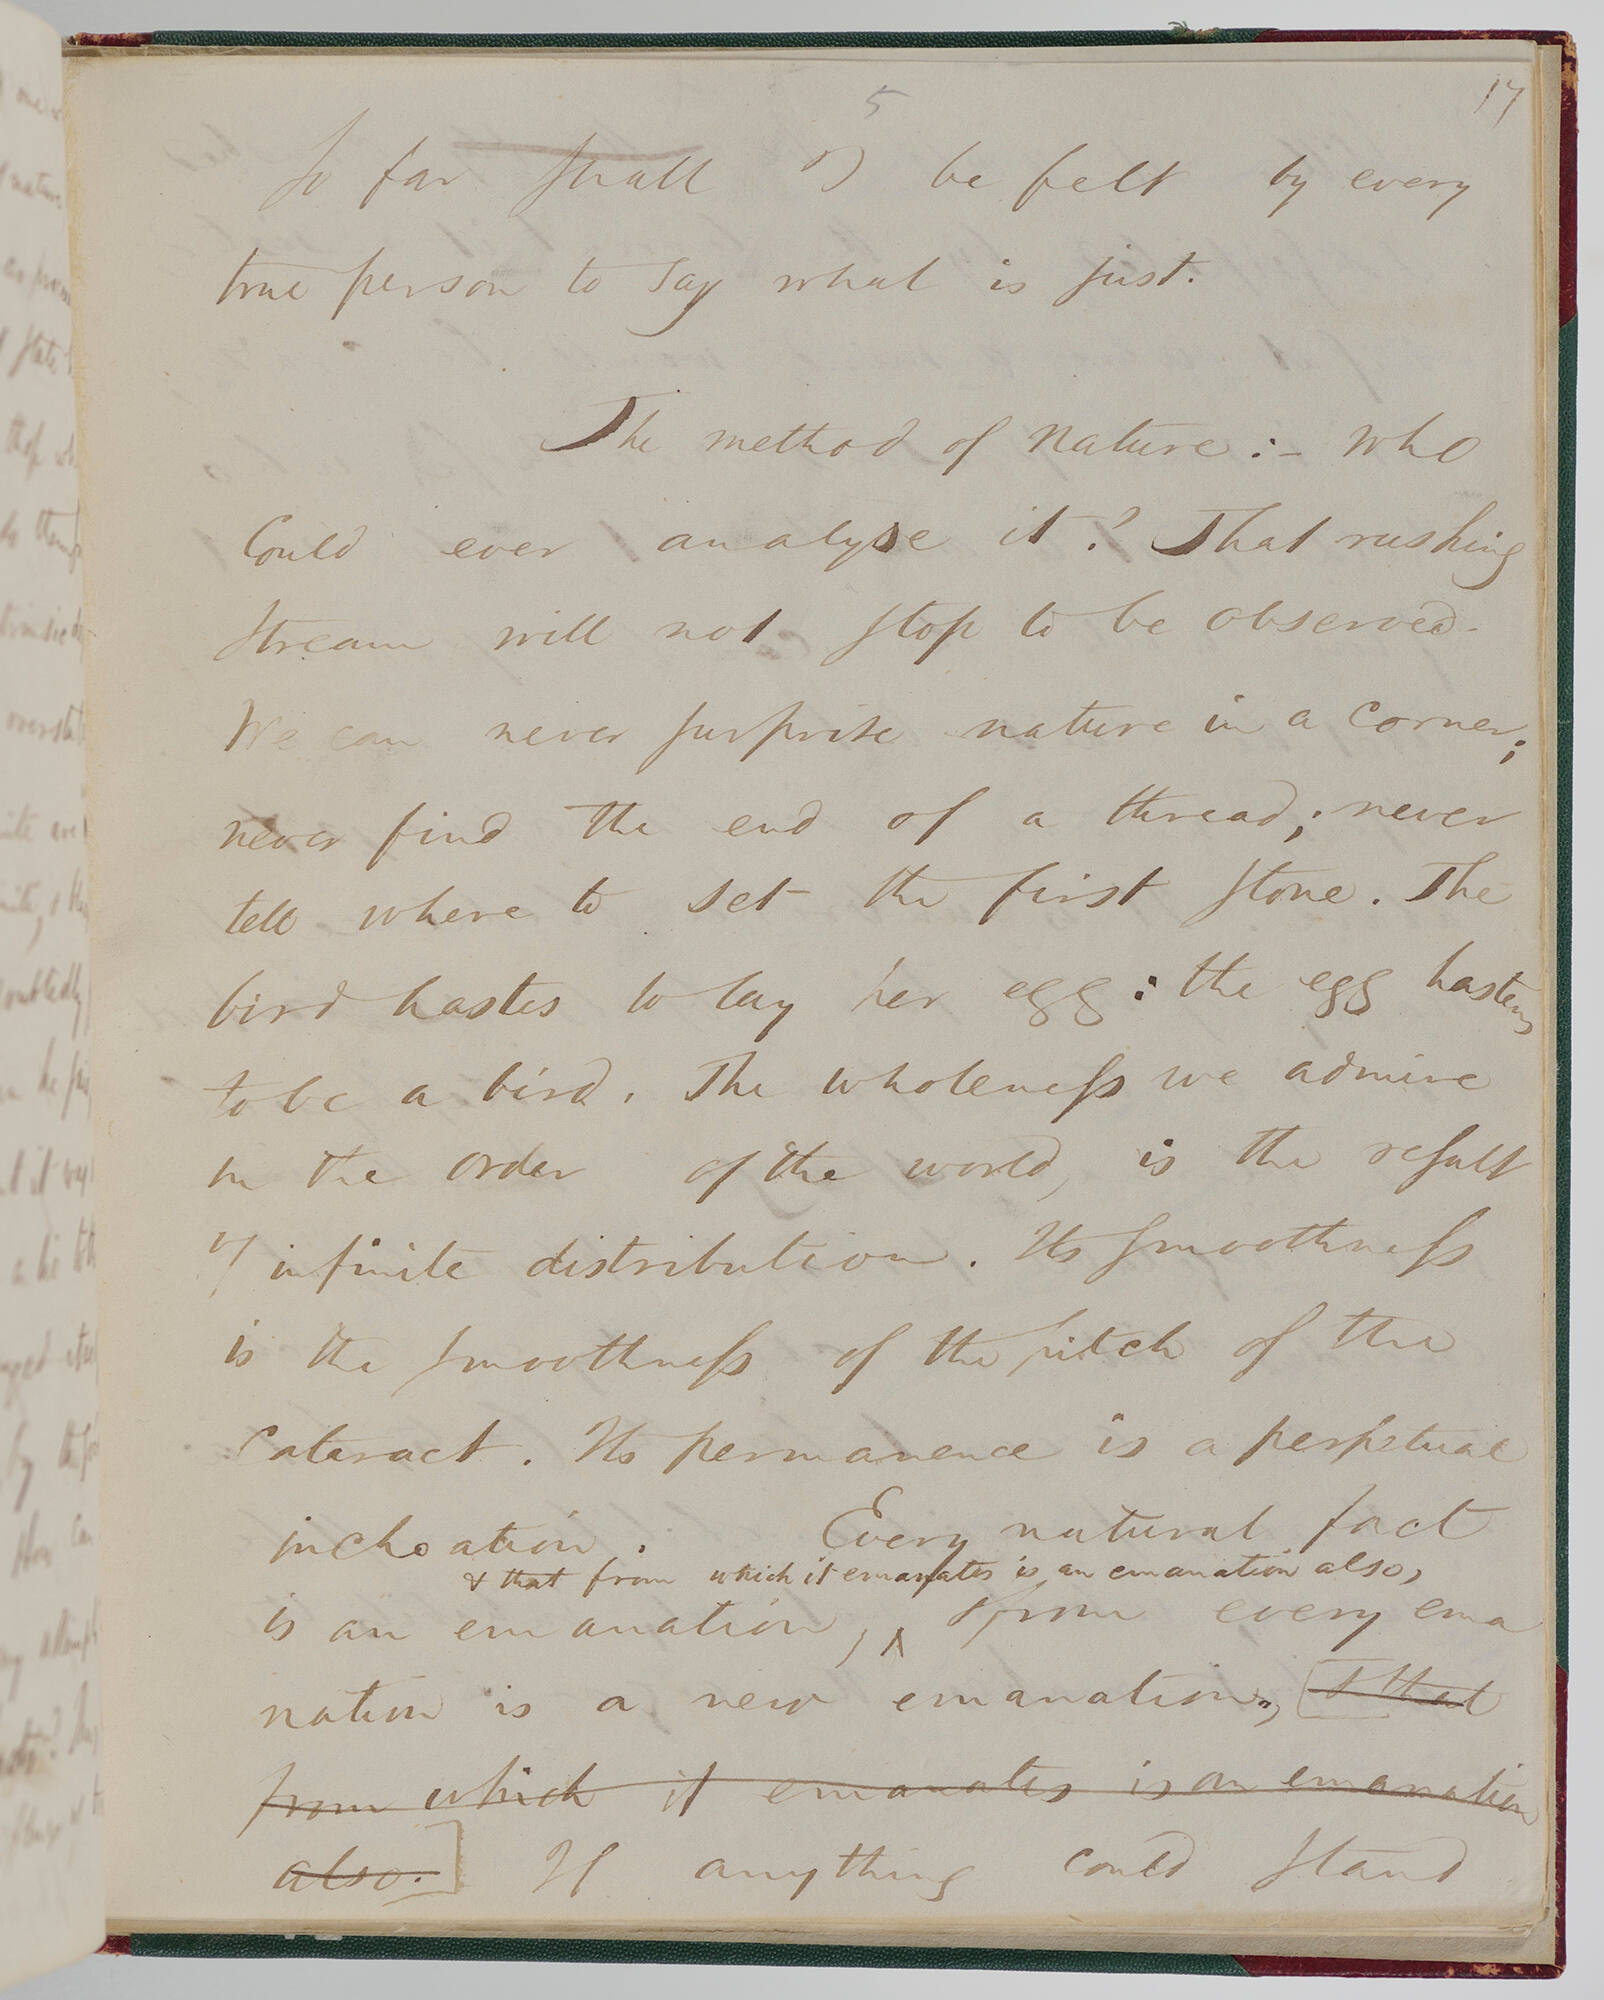 5
17
So far shall it be felt by every
true person to say what is just.
The method of Nature:– who
Could ever analyse it? That rushing
stream will not stop to be observed.
We can never surprise nature in a corner;
never find the end of a thread; never
tell where to set the first stone. The
bird hastes to lay her egg: the egg hastens
to be a bird. The wholeness we admire
in the order of the world, is the result
of infinite distribution. Its smoothness
is the smoothness of the pitch of the
Cataract. Its permanence is a perpetual
inchoation. Every natural fact
& that from which it emanates is an emanation also,
is an emanation, & from every ema
nation is a new emanation, & that
from which it emanates is an emanation
also. If anything could stand